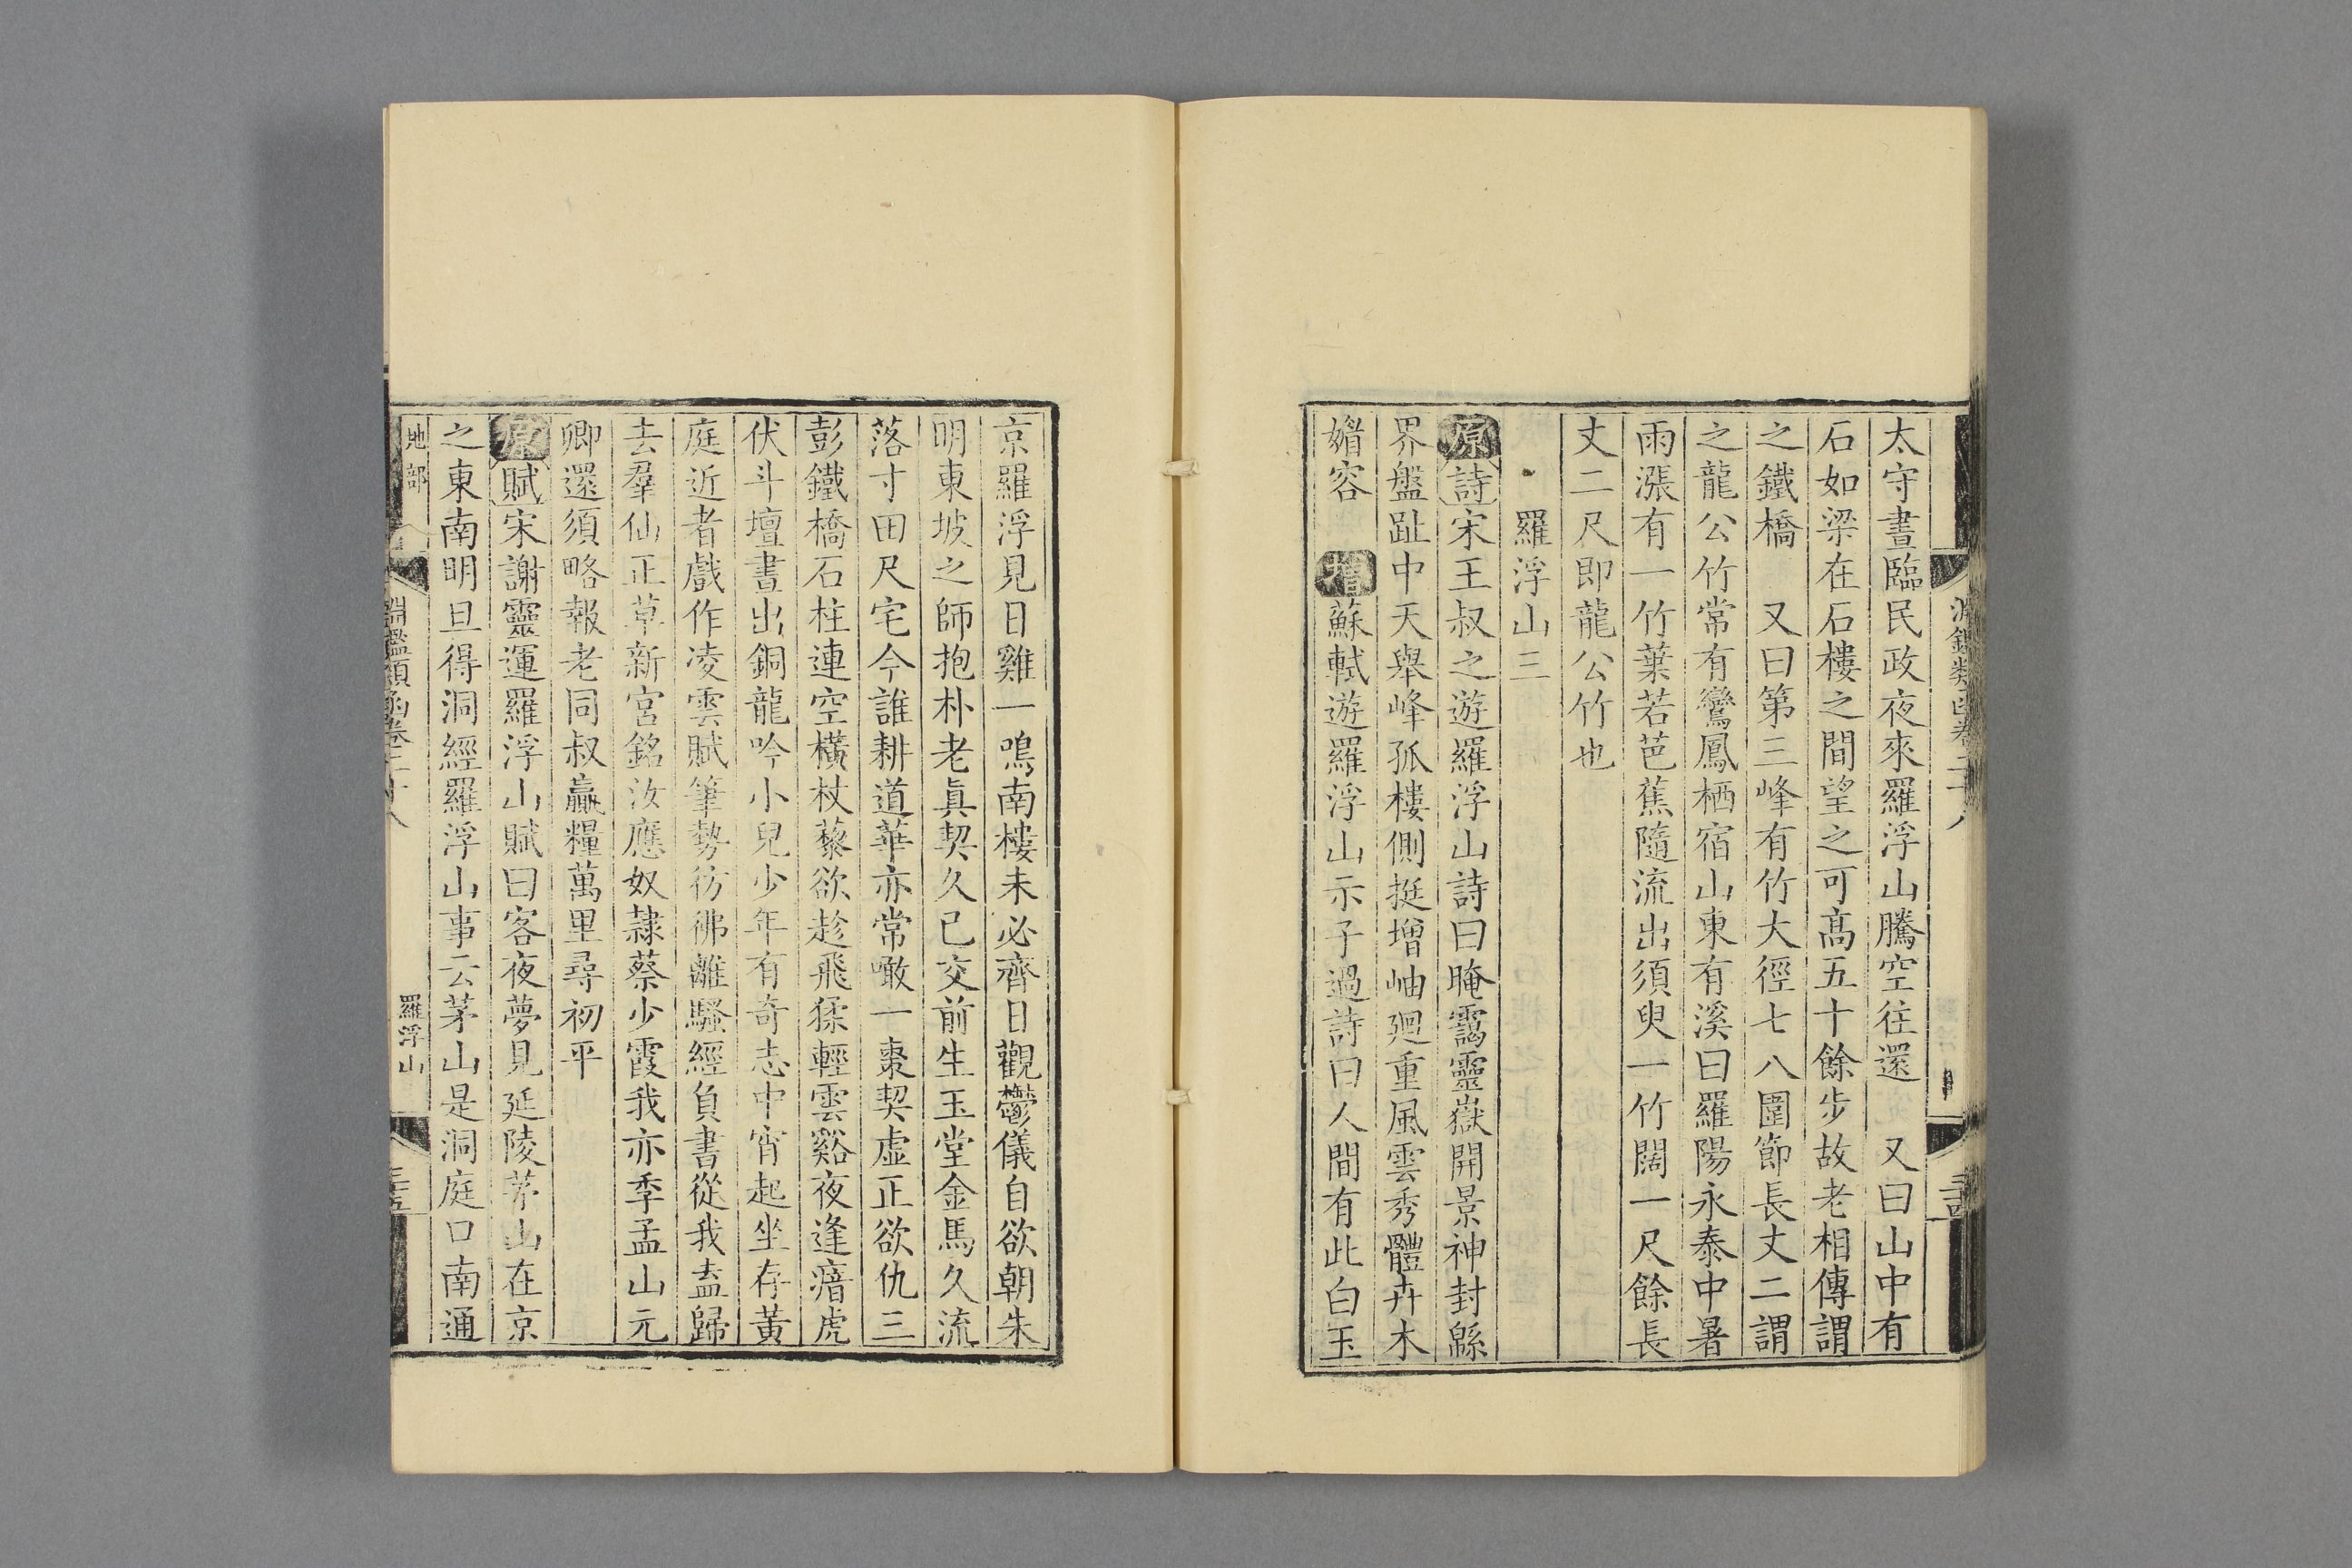 太守晝臨民政夜來羅浮山騰空往還　又曰山中有
石如梁在石樓之間望之可高五十餘步故老相傳謂
之鐵橋　又曰第三峰有竹大徑七八圍節長丈二謂
之龍公竹常有鸞鳳栖宿山東有溪曰羅陽永泰中暑
雨漲有一竹葉若芭蕉隨流出須臾一竹闊一尺餘長
丈二尺即龍公竹也
羅浮山三
原詩宋王叔之遊羅浮山詩曰晻靄靈嶽開景神封緜
界盤趾中天舉峰孤樓側挺增岫迴重風雲秀體卉木
媚容　增蘇軾遊羅浮山示子過詩曰人間有此白玉
京羅浮見日雞一鳴南樓未必齊日觀鬱儀自欲朝朱
明東坡之師抱朴老真契久已交前生玉堂金馬久流
落寸田尺宅今誰耕道華亦常噉一棗契虛正欲仇三
彭鐵橋石柱連空橫杖藜欲趁飛猱輕雲谿夜逢瘖虎
伏斗壇晝出銅龍吟小兒少年有奇志中宵起坐存黃
庭近者戲作凌雲賦筆勢彷彿離騷經負書從我盍歸
去羣仙正草新宮銘汝應奴隸蔡少霞我亦季孟山元
卿還須略報老同叔贏糧萬里尋初平
原賦宋謝靈運羅浮山賦曰客夜夢見延陵茅山在京
之東南明旦得洞經羅浮山事云茅山是洞庭口南通
地部
淵鑑類函卷二十八
羅浮山